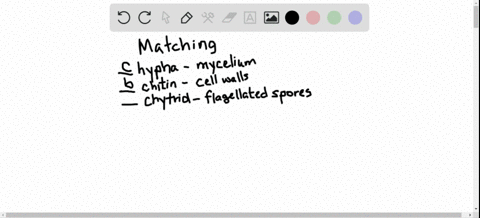 Matching
c hypha - mycelium
b chitin - cell walls
__ chytrid - flagellated spores